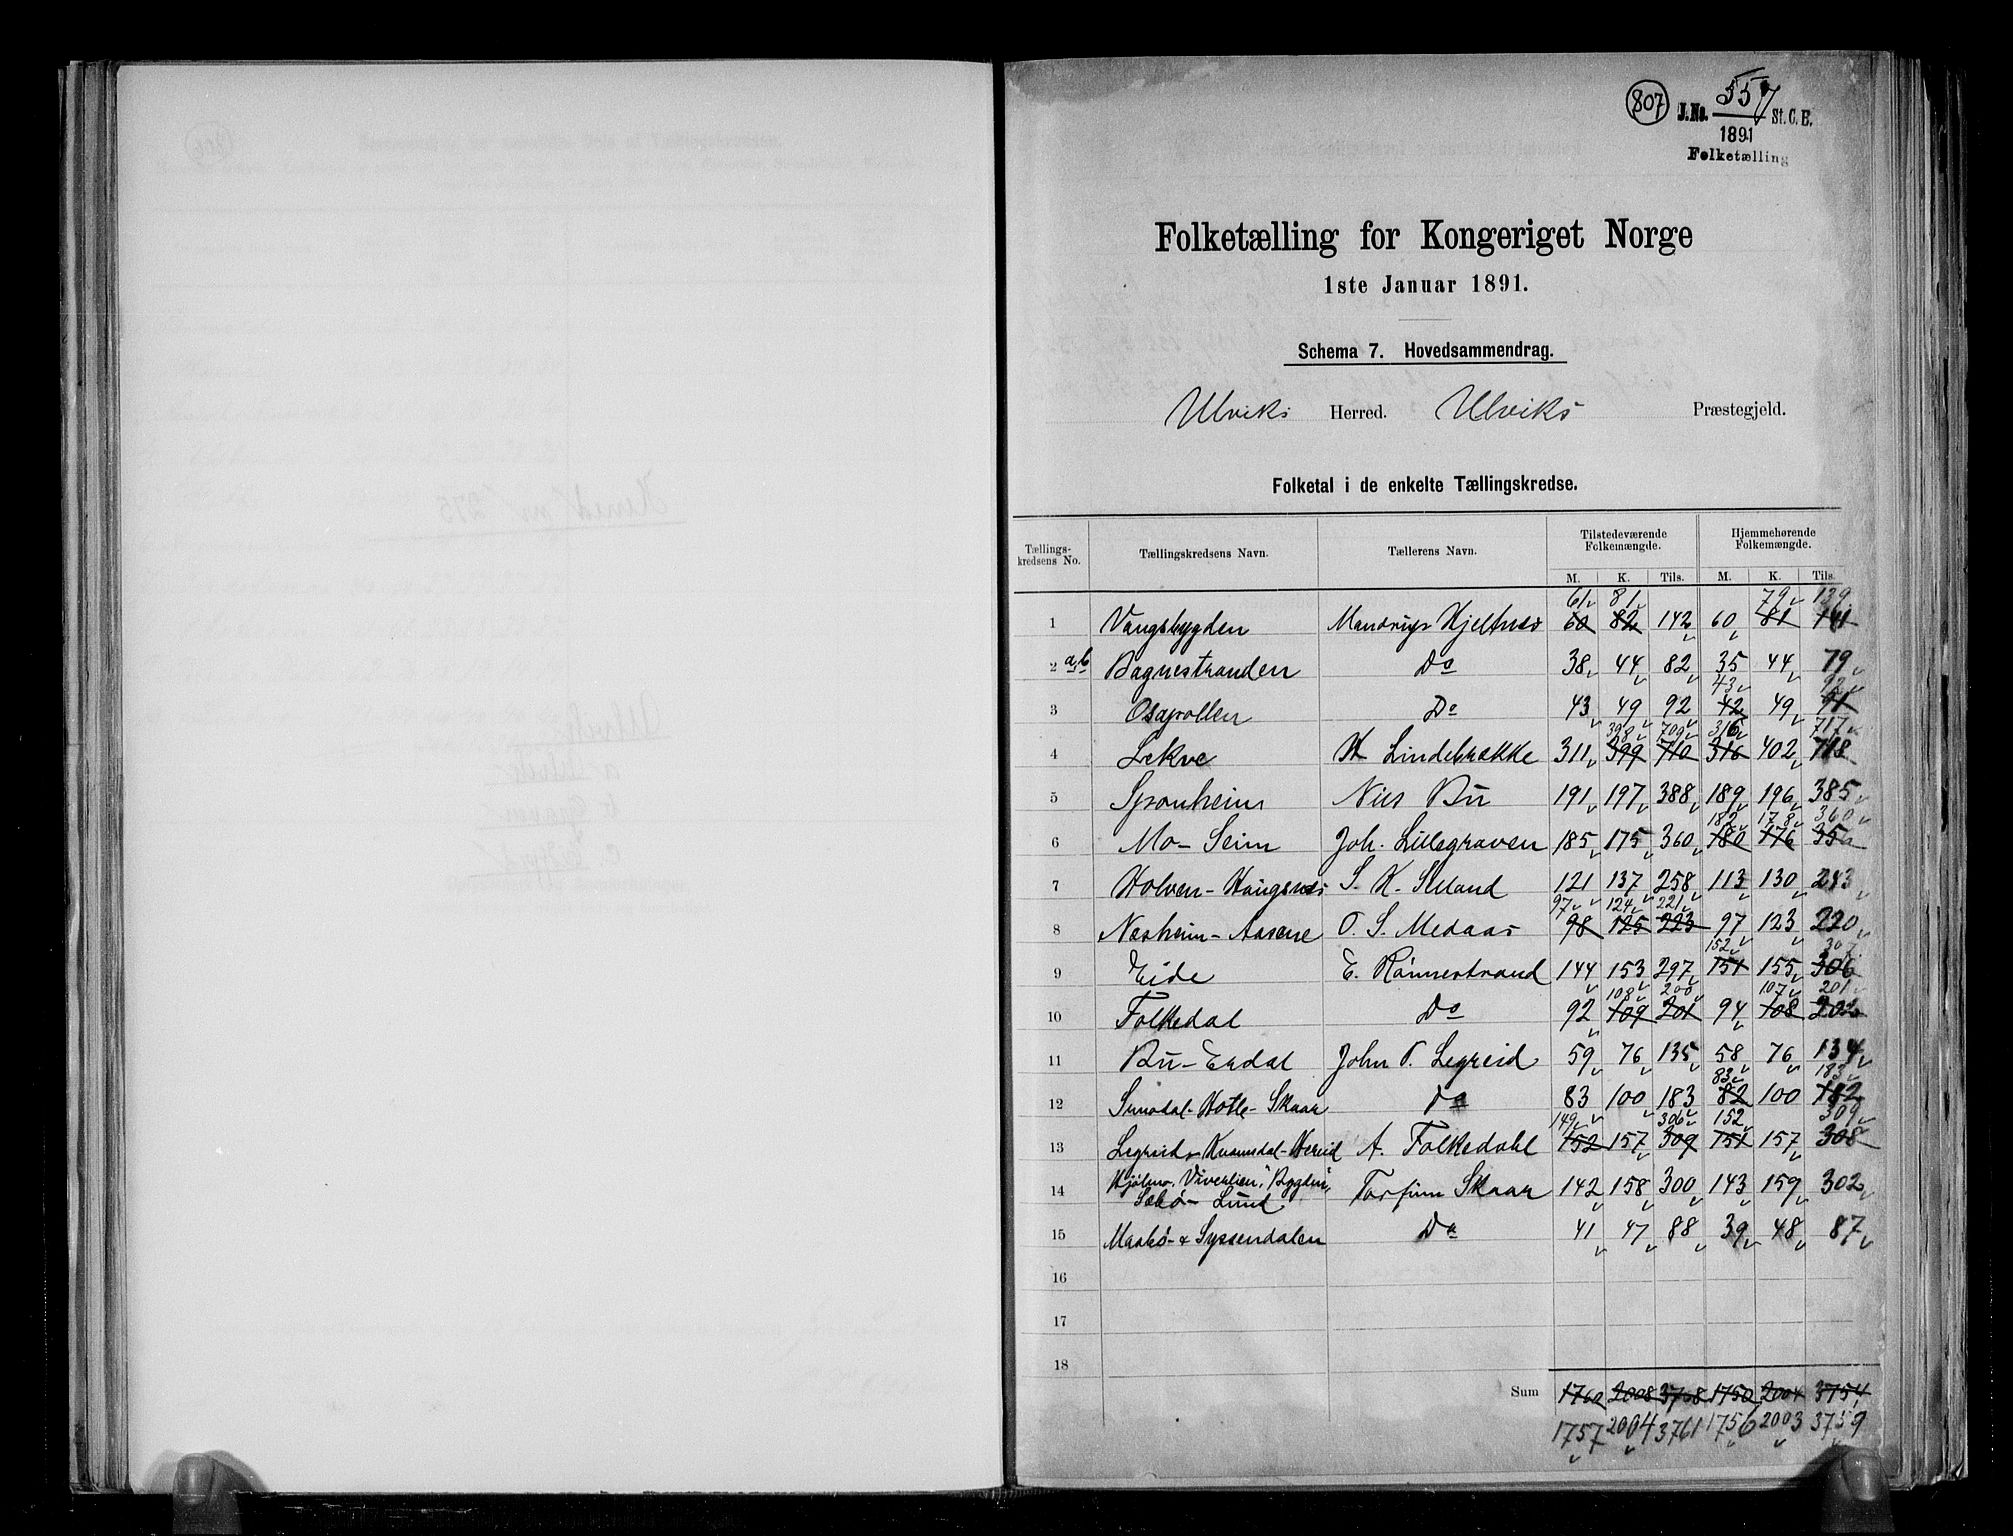 807
J.No. 557 St. C. B.
1891
Folketælling
Folketælling for Kongeriget Norge
1ste Januar 1891.
Schema 7. Hovedsammendrag.
Ulviks Herred. Ulviks Præstegjeld.
Folketal i de enkelte Tællingskredse.
Tællings-kredsens No. Tællingskredsens Navn. Tællerens Navn. Tilstedeværende Folkemængde. Hjemmehørende Folkemængde.
M. K. Tils. M. K. Tils.
61 81 79 139
1 Vangsbygden Mandrup Hjeltnes 60 82 142 60 81 141
2 a,b Bagnestranden Do 38 44 82 35 44 79
43 92
3 Osapollen Do 43 49 92 42 49 91
398 709 315 717
4 Lekve H Lindebrække 311 399 710 316 402 718
5 Sponheim Nils Bu 191 197 388 189 196 385
182 178 360
6 Mo- Seim Joh. Lillegraven 185 175 360 180 176 356
7 Holven- Haugsnes S. K. Selland 121 137 258 113 130 243
97 124 221
8 Nesheim- Aasene O. S. Medaas 98 125 223 97 123 220
152 307
9 Eide E. Rönnestrand 144 153 297 151 155 306
108 200 107 201
10 Folkedal Do 92 109 201 94 108 202
11 Bu- Erdal John T. Legreid 59 76 135 58 76 134
83 183
12 Simodal- Hotle- Skaar Do 83 100 183 82 100 182
149 306 152 309
13 Legreid- Kvamsdal- Hereid A. Folkedahl 152 157 309 151 157 308
14 Hjølmo, Viverlien, "Bygden", Sæbø- Lund Torfinn Skaar 142 158 300 143 159 302
15 Maabø- & Syssendalen Do 41 47 88 39 48 87
16
17
18
Sum 1760 2008 3768 1750 2004 3754
1757 2004 3761 1756 2003 3759